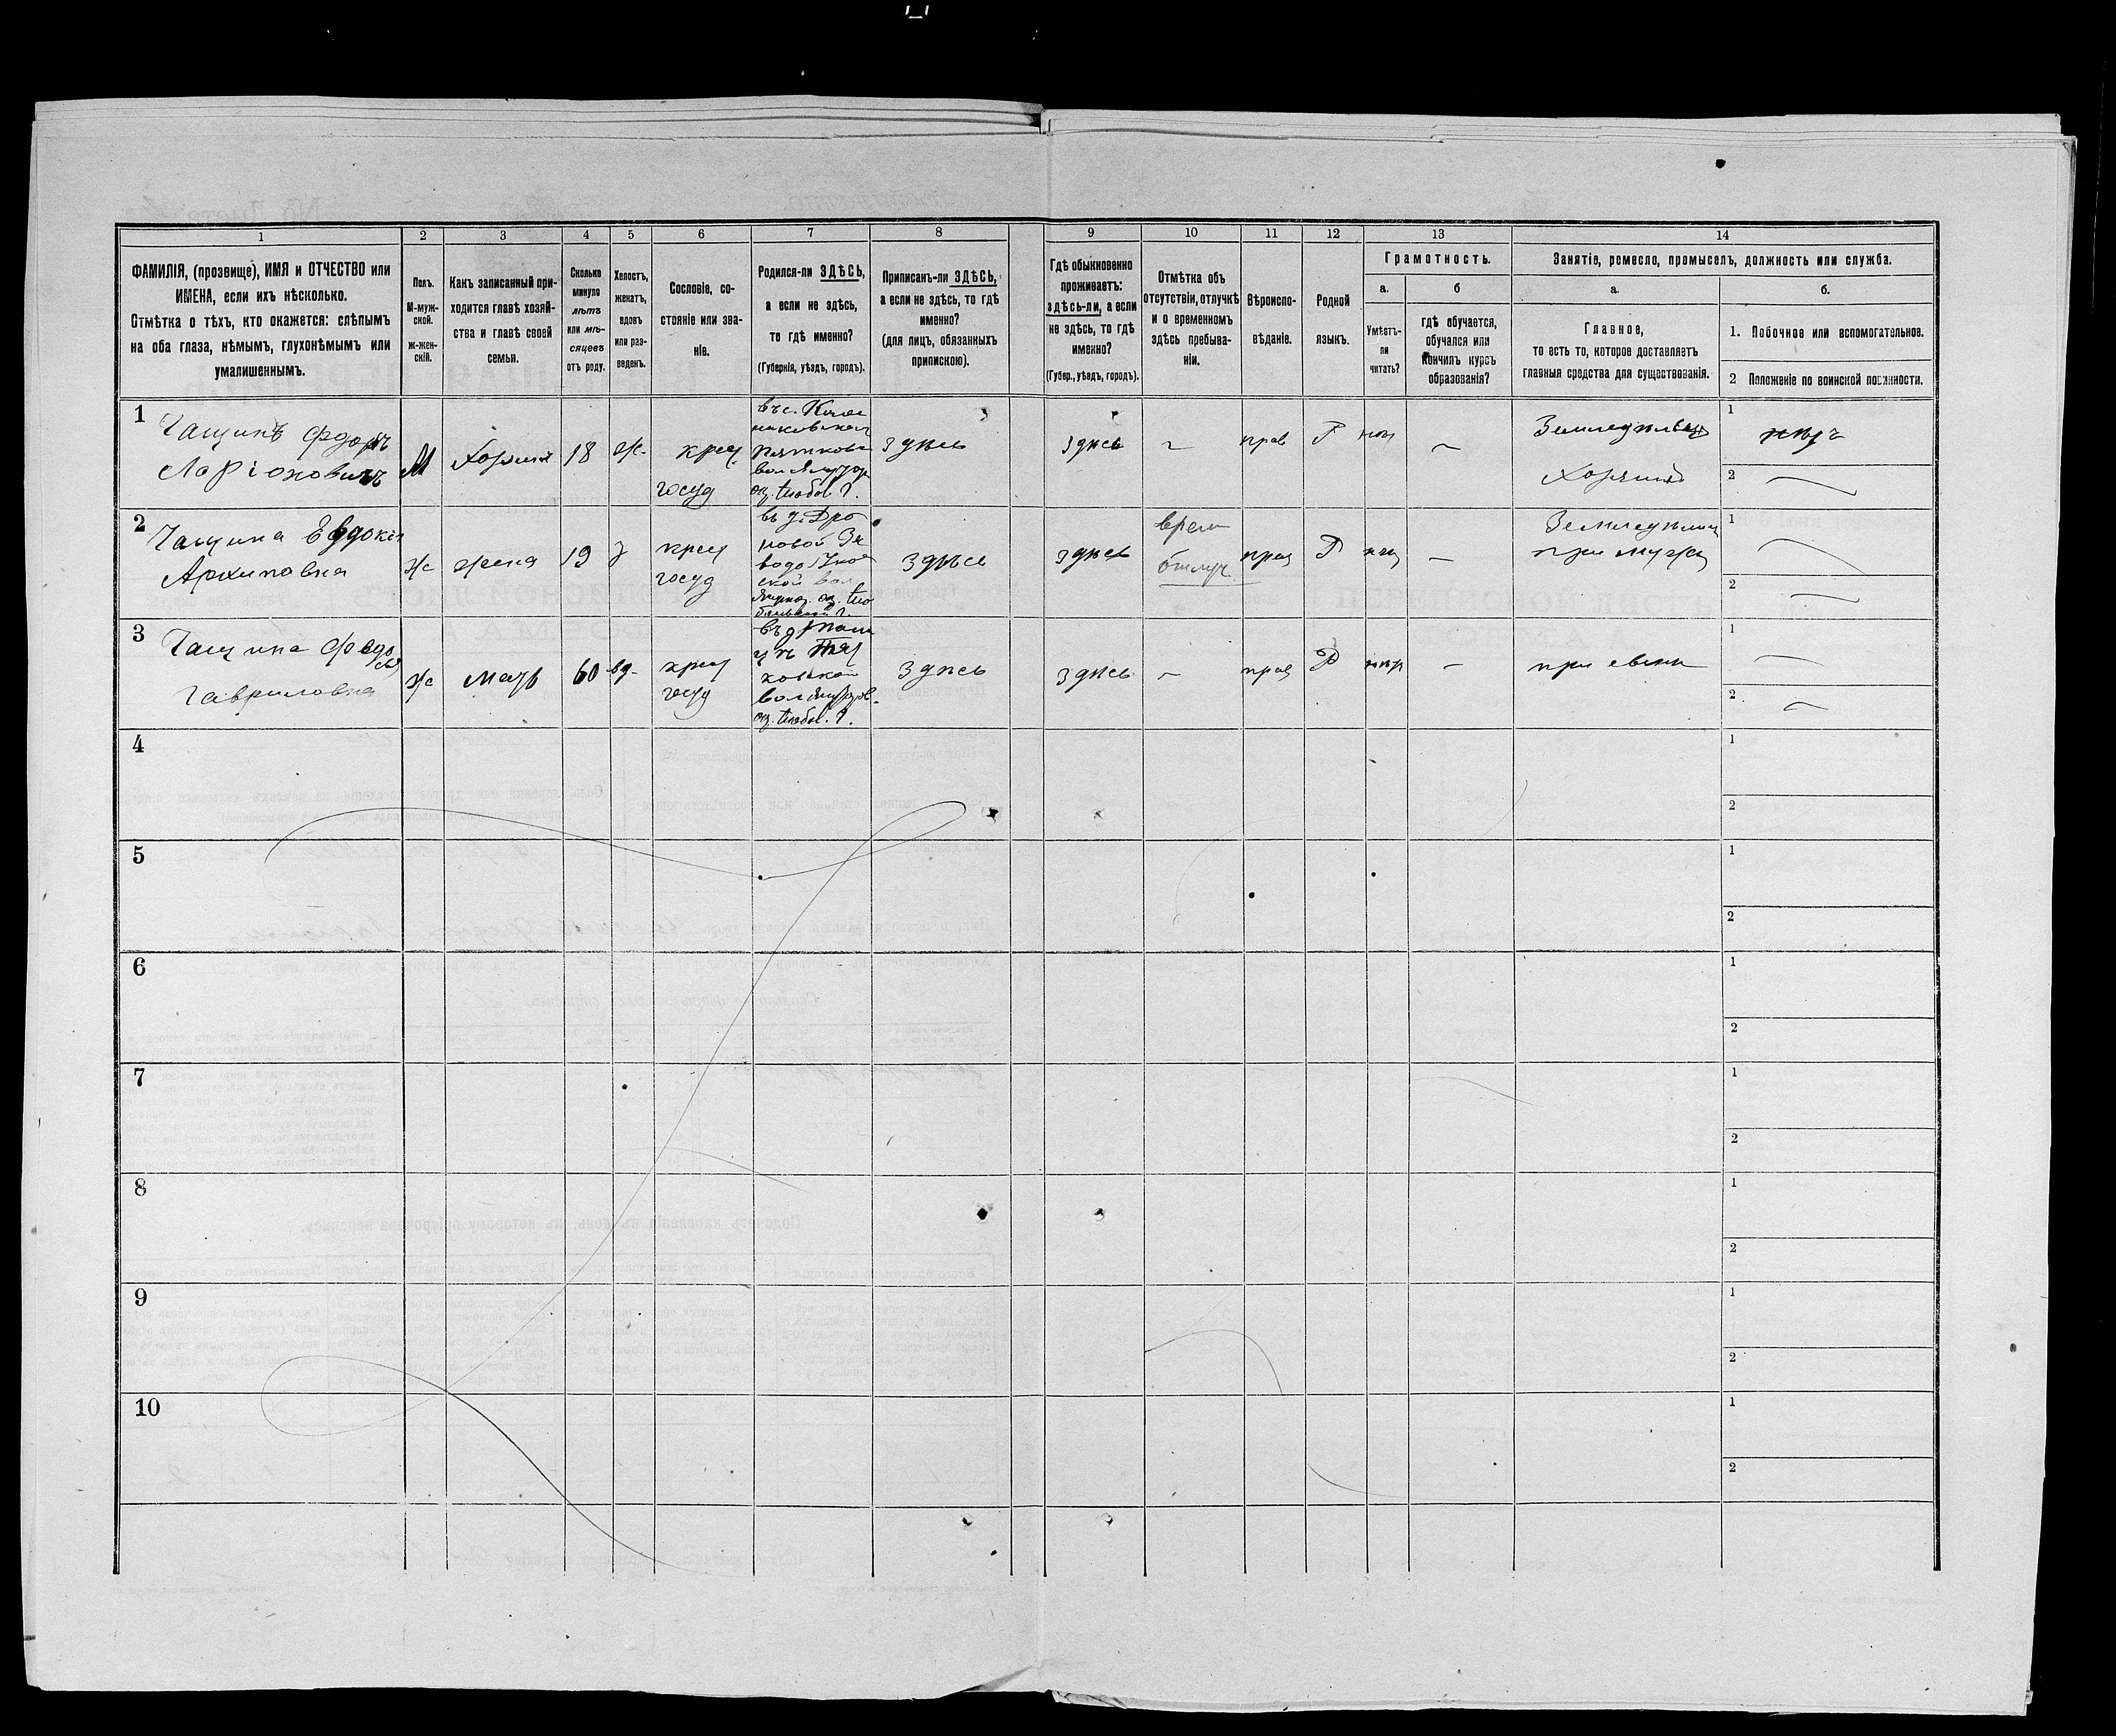 1 2 3 4 5 6 7 8 9 10 11 12 13 14
ФАМИЛІЯ, (прозвище), ИМЯ и ОТЧЕСТВО или
ИМЕНА, если ихъ нѣсколько.
Отмѣтка о тѣхъ, кто окажется: слѣпымъ
на оба глаза, нѣмымъ, глухонѣмымъ или
умалишеннымъ.
Полъ.
М-муж-
ской.
ж-жен-
скій.
Какъ записанный при-
ходится главѣ хозяй-
ства и главѣ своей
семьи.
Сколько
минуло
лѣтъ
или мѣ-
сяцевъ
отъ роду.
Холостъ,
женатъ,
вдовъ
или раз-
веденъ.
Сословіе, со-
стояніе или зва-
ніе.
Родился-ли ЗДѢСЬ,
а если не здѣсь,
то гдѣ именно?
(Губернія, уѣздъ, городъ).
Приписанъ-ли ЗДѢСЬ,
а если не здѣсь, то гдѣ
именно?
(для лицъ, обязанныхъ
припискою).
Гдѣ обыкновенно
проживаетъ:
здѣсь-ли, а если
не здѣсь, то гдѣ
именно?
(Губер., уѣздъ, городъ).
Отмѣтка объ
отсутствіи, отлучкѣ
и о временномъ
здѣсь пребыва-
ніи.
Вѣроиспо-
вѣданіе.
Родной
языкъ.
Грамотность.
а.
Умѣетъ-
ли
читать?
б
гдѣ обучается,
обучался или
кончилъ курсъ
образованія?
Занятіе, ремесло, промыселъ, должность или служба.
а.
Главное,
то есть то, которое доставляетъ
главныя средства для существованія.
б.
1. Побочное или вспомогательное.
2 Положеніе по воинской повинности.
1
Чащинъ Федоръ
Ларіоновичъ
М
Хозяинъ
18
ж.
крес
госуд
въ с.
вол Ялутор
ок. Тобол. г.
здѣсь
здѣсь
прав
Р
нѣт
Земледѣлец
Хозяинъ
1
нѣтъ
2
2
Чащина Евдокія
Архиповна
ж
жена
19
з
крес
госуд
въ д. Дро
новой За
водоуко
ской вол
Ялутор. ок. То
больской г.
здѣсь
здѣсь
врем
отлуч.
прав
Р
нѣт
Земледѣлец
при мужѣ
1
2
3
Чащина Федо
сья
Гавриловна
ж
мать
60
вд.
крес
госуд
въ д
вол Ялуторов.
ок. Тобол. г.
здѣсь
здѣсь
прав
Р
нѣт
при сынѣ
1
2
4
1
2
5
1
2
6
1
2
7
1
2
8
1
2
9
1
2
10
1
2